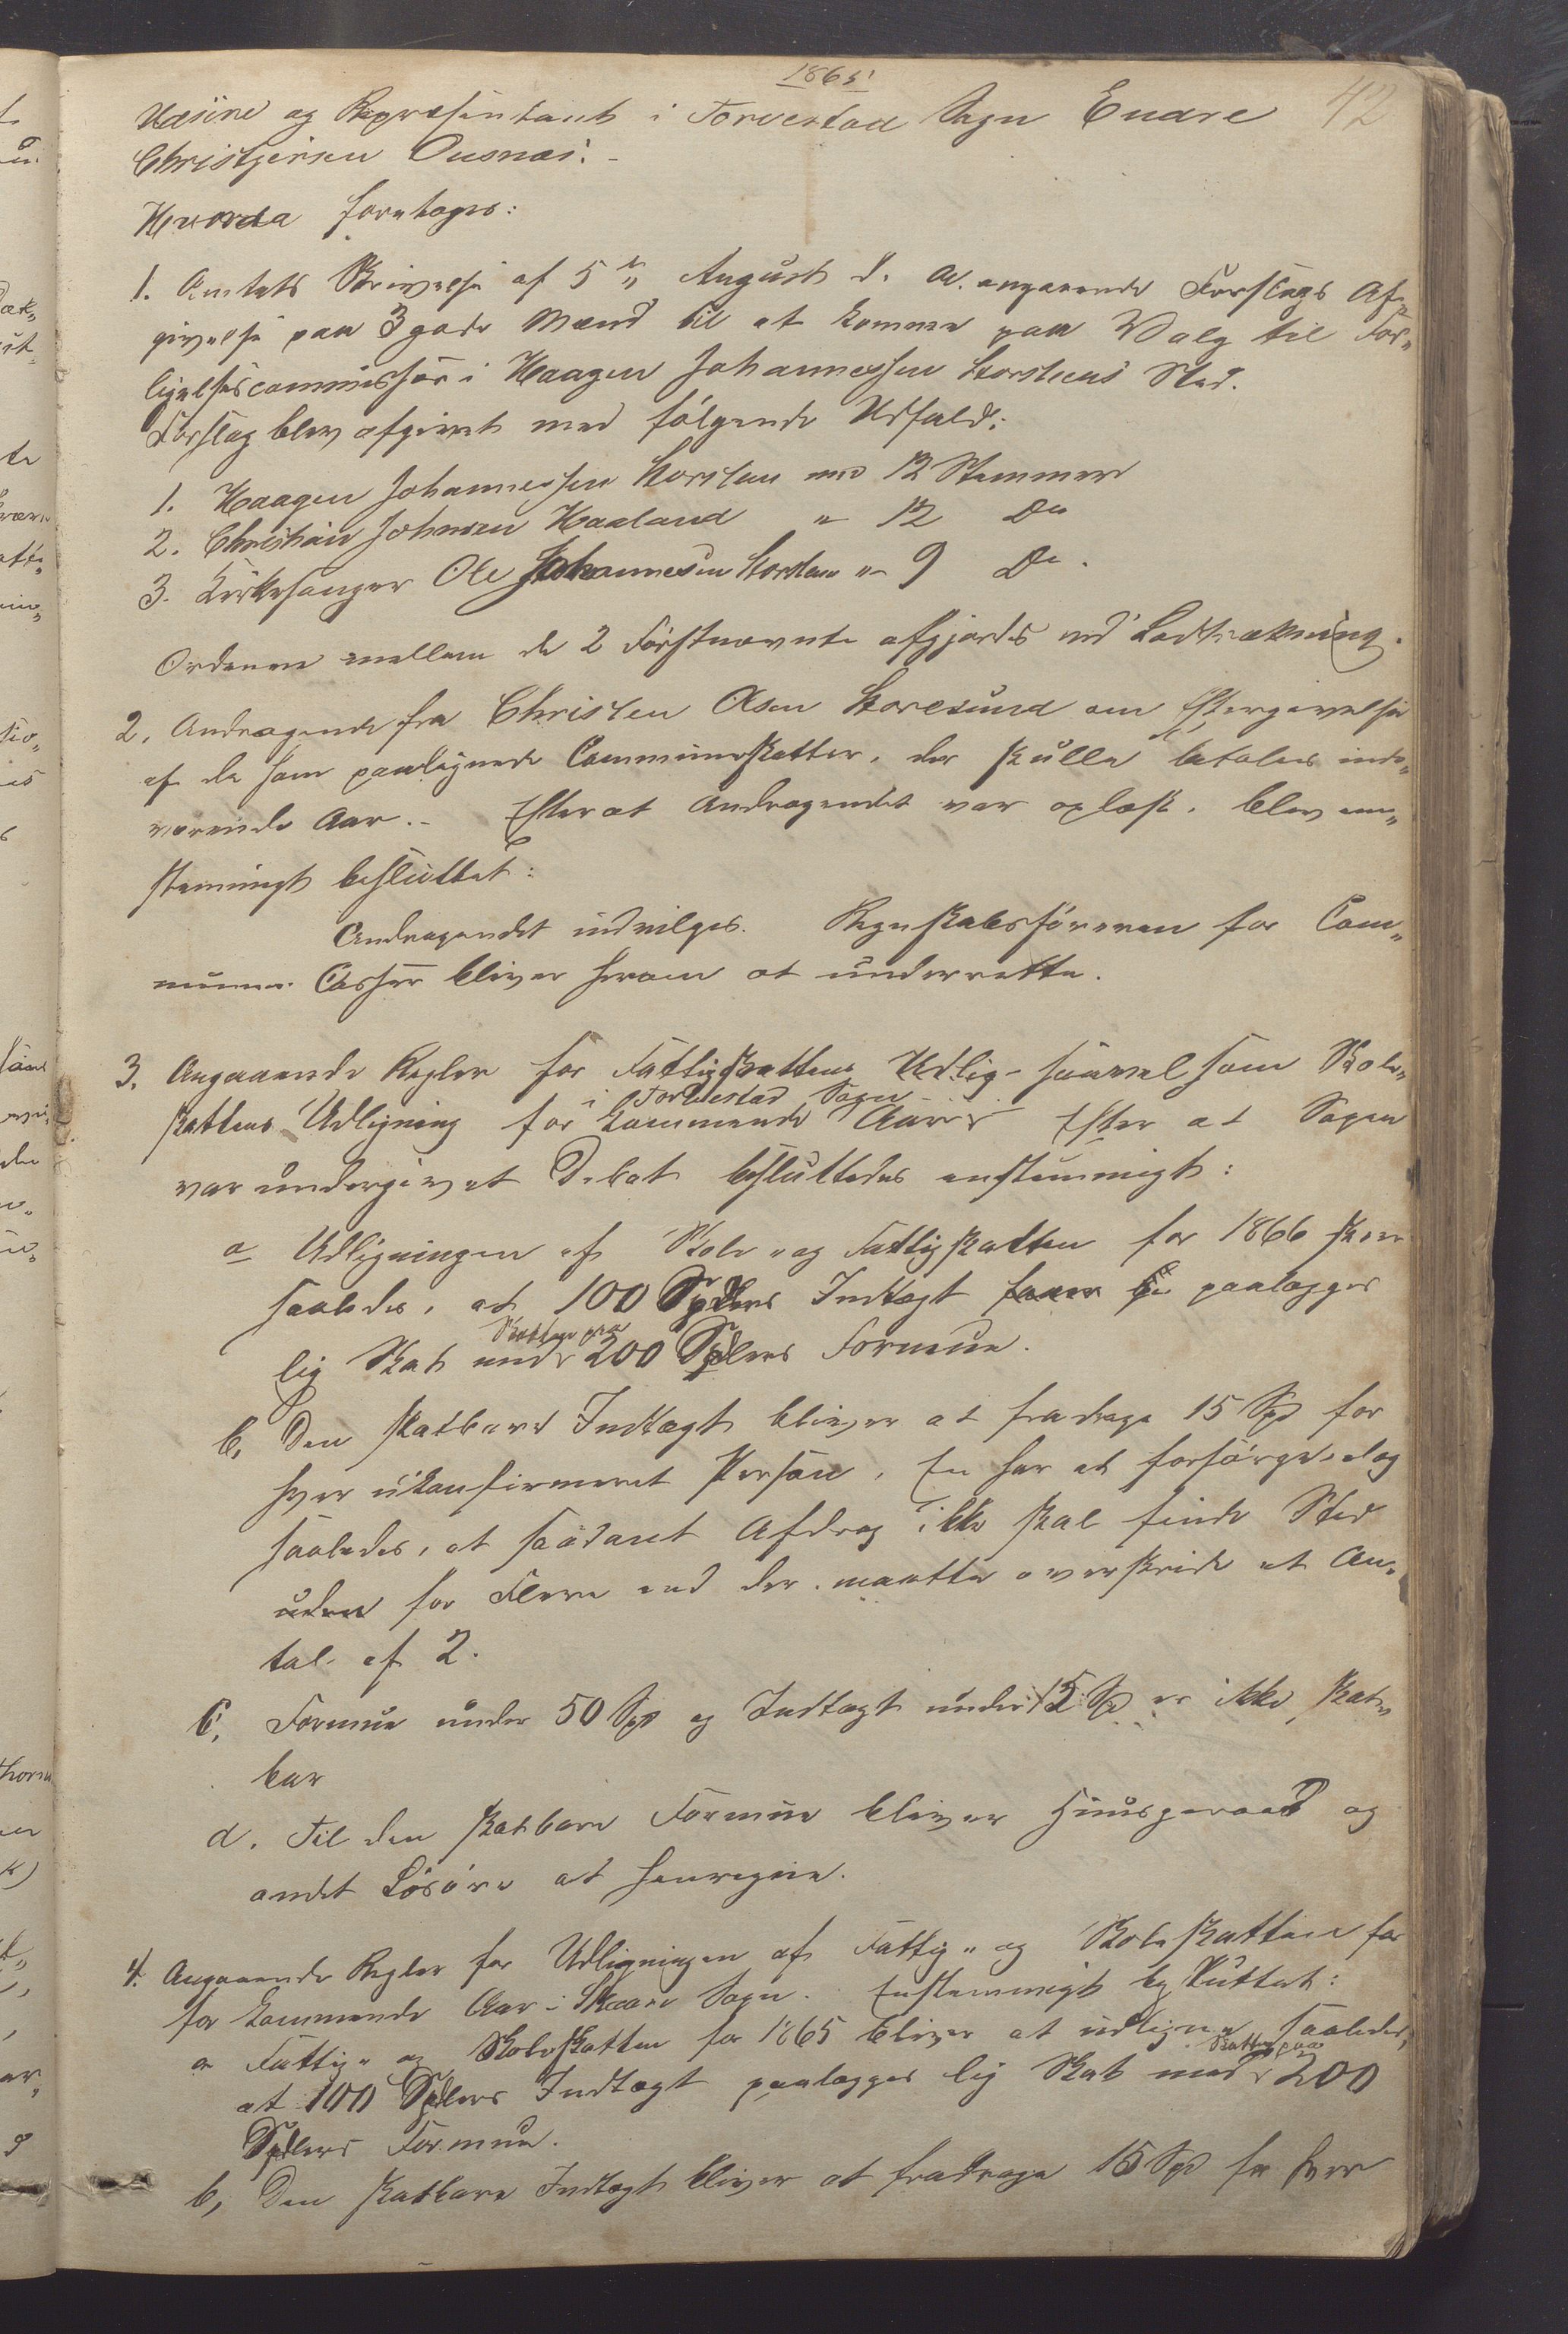 1865
42
og Repræsentant i Torvestad Sogn Endre
Christensen Ousnæs. -
Hvorda foretoges:
1. Amtets Skrivelse af 5te August d. A. angaaende Forslags Af-
givelse paa 3 gode Mænd til at komme paa Valg til For-
ligelsescommissær i Haagen Johannessen Storsteens Sted.
Forslag blev afgivet med følgende Udfald:
1. Haagen Johannessen Storsteen med 12 Stemmer
2. Christian Johnsen Haaland " 12 Do
3. Kirkesanger Ole Johannesen Storsteen " 9 Do.
Ordenen mellem de 2 Førstnævnte afgjordes ved Lodtrækning.
2. Andragende fra Christen Olsen Storesund om Eftergivelse
af de ham paalignede Communeskatter, der skulle betales inde-
værende Aar. - Efterat Andragendet var oplæst, blev een-
stemmigt besluttet:
Andragendet indvilges. Regnskabsføreren for Com-
munens Casser bliver herom at underrette.
3. Angaaende Regler for Fattigskattens Udlig- saavelsom Skole-
i Torvestad Sogn
skattens Udligning for kommende Aar. Efter at Sagen
var undergivet Debat besluttedes enstemmigt:
a Udligningen af Skole- og Fattigskatten for 1866 skeer
saaledes, at 100 Spdlers Indtægt paalægges
Skatten paa
lig Skat med 200 Spdlers Formue.
b, Den skatbare Indtægt bliver at fradrage 15 Spd for
hver ukonfirmeret Person, En har at forsørge, dog
saaledes, at saadant Afdrag ikke skal finde Sted
uden for Flere end der maatte overskride et An-
tal af 2.
C, Formue under 50 Spd og Indtægt under 15 Spd er ikke skat-
bar
d. Til den skatbare Formue bliver Huusgeraad og
andet Løsøre at henregne.
4. Angaaende Regler for Udligningen af Fattig- og Skoleskatten for
for kommende Aar i Skaare Sogn. Enstemmigt besluttet:
a Fattig- og Skoleskatten for 1865 bliver at udligne saaledes,
Skatten paa
at 100 Spdlers Indtægt paalægges lig Skat med 200
Spdlers Formue.
b, Den skatbare Indtægt bliver at fradrage 15 Spd for hver